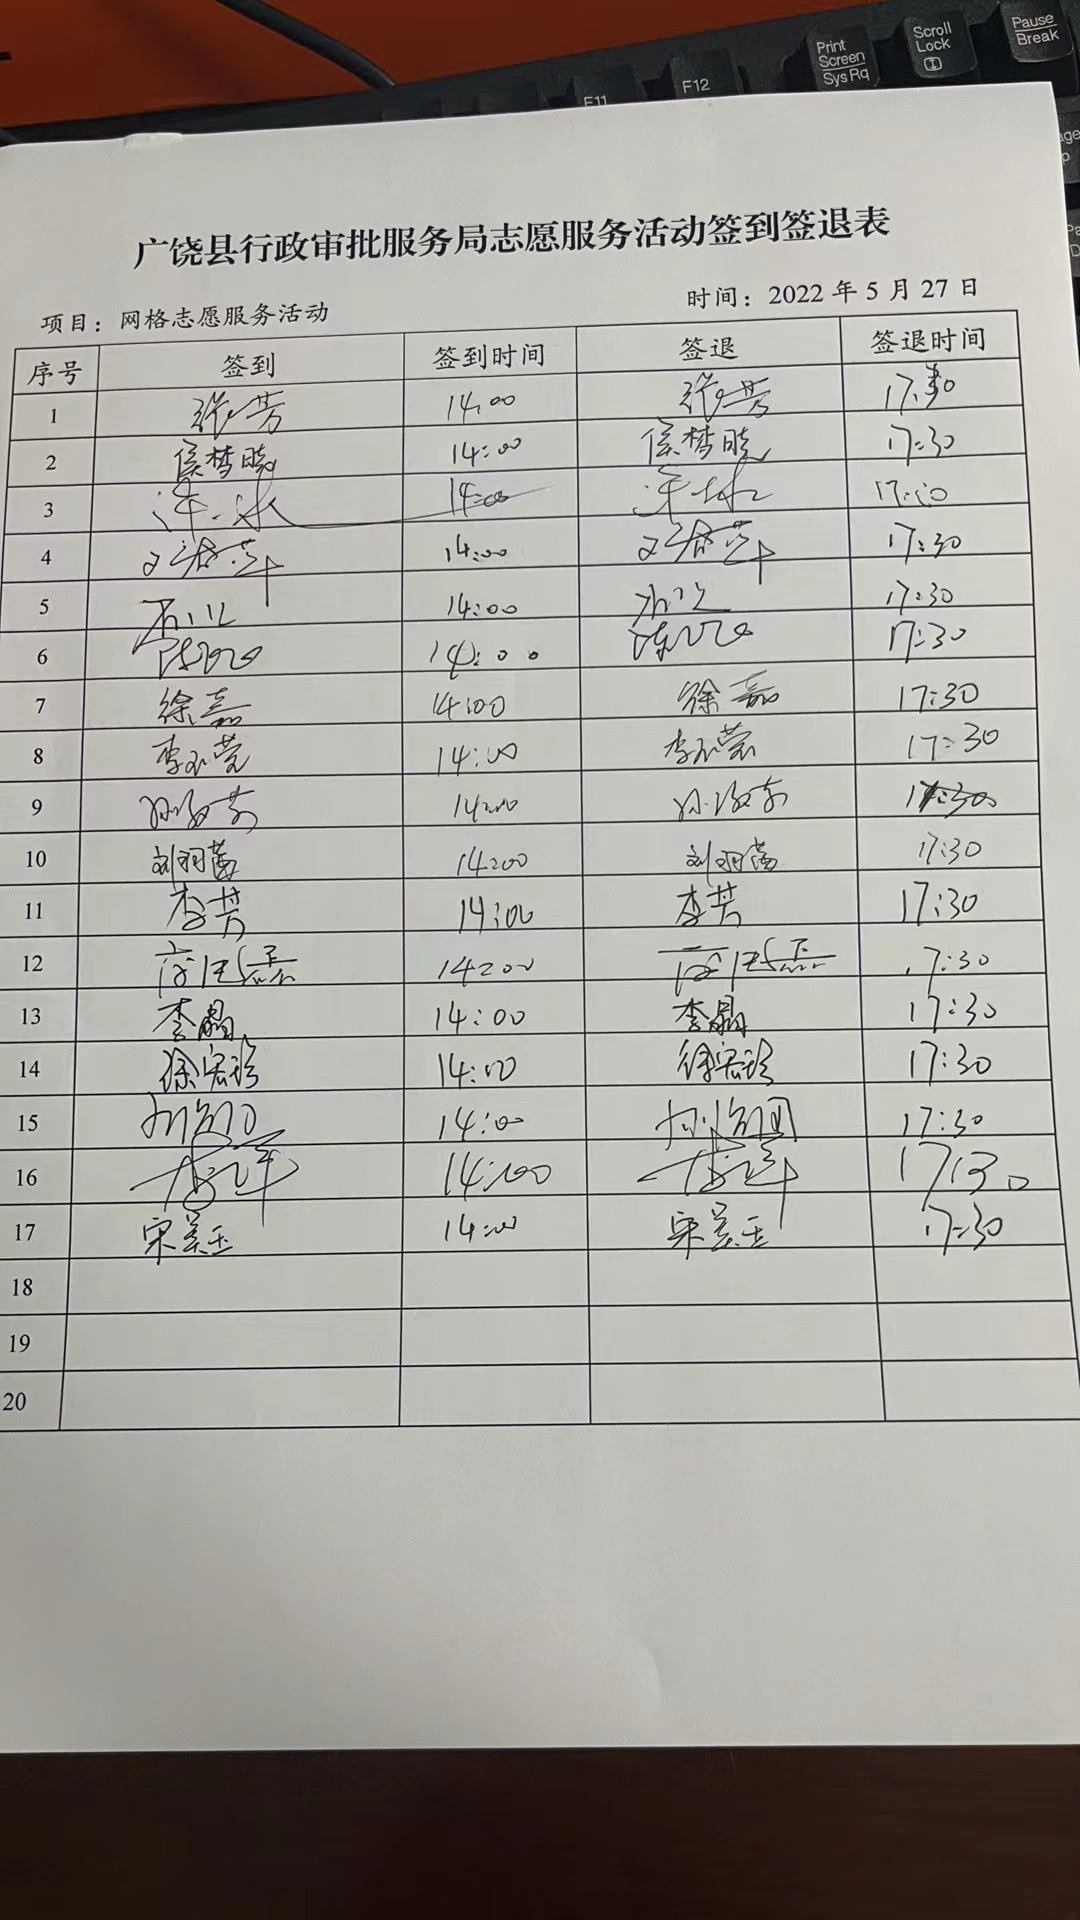 Print
Screen
Sys Rq
Scroll
Lock
Pause
Break
F11
F12
广饶县行政审批服务局志愿服务活动签到签退表
项目：网格志愿服务活动
时间：2022 年 5 月 27 日
序号 签到 签到时间 签退 签退时间
1 张芳 14:00 张芳 17:30
2 侯梦晓 14:00 侯梦晓 17:30
3 14:00
4 14:00 17:30
5 14:00 17:30
6 14:00 17:30
7 徐嘉 14:00 徐嘉 17:30
8 李玉莹 14:00 李玉莹 17:30
9 14:00 17:30
10 刘羽茜 14:00 刘羽茜 17:30
11 李芳 14:00 李芳 17:30
12 14:00 17:30
13 李晶 14:00 李晶 17:30
14 徐宏珍 14:00 徐宏珍 17:30
15 14:00 17:30
16 14:00 17:30
17 宋美玉 14:00 宋美玉 17:30
18
19
20